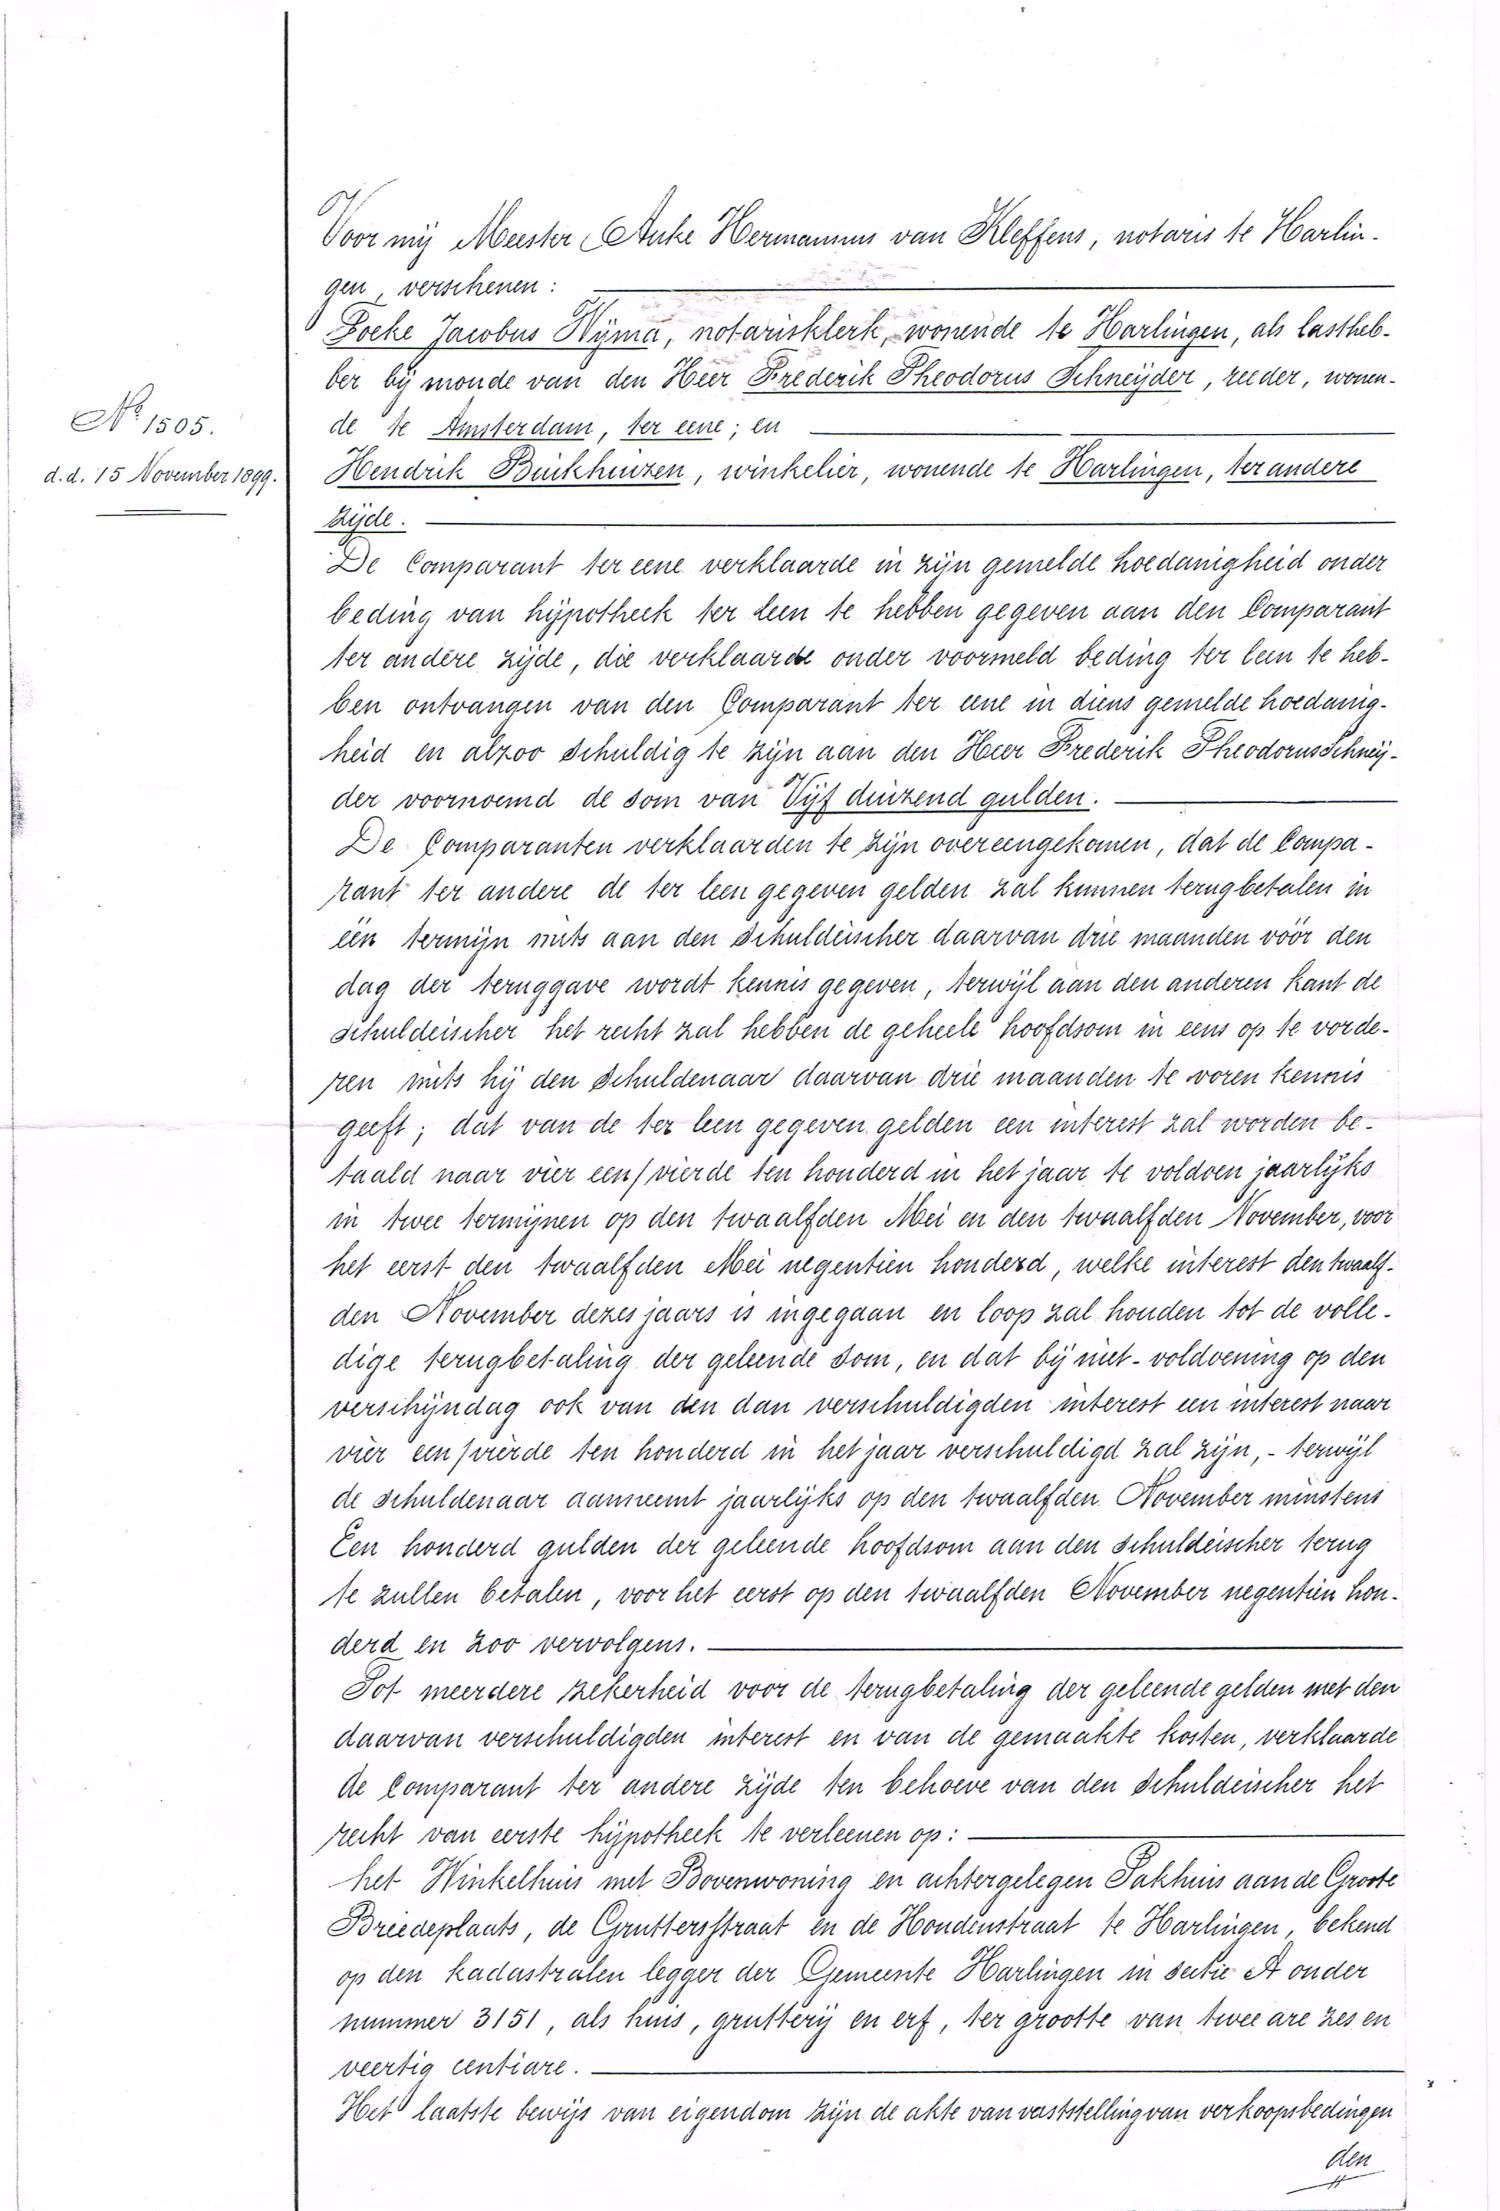 Voor mij Meester Anke Hermannus van Kleffens, notaris te Harlin-
gen, verschenen:
Focke Jacobus Wijma, notarisklerk, wonende te Harlingen, als lastheb-
ber bij monde van den Heer Frederik Theodorus Schneijder, reeder, wonen-
No. 1505.
de te Amsterdam, ter eene; en
d.d. 15 November 1899.
Hendrik Buikhuizen, winkelier, wonende te Harlingen, ter andere
zijde.
De Comparant ter eene verklaarde in zijn gemelde hoedanigheid onder
beding van hijpotheek ter leen te hebben gegeven aan den Comparant
ter andere zijde, die verklaarde onder voormeld beding ter leen te heb-
ben ontvangen van den Comparant ter eene in diens gemelde hoedanig-
heid en alzoo schuldig te zijn aan den Heer Frederik Theodorus Schneij-
der voornoemd de som van Vijf duizend gulden.
De Comparanten verklaarden te zijn overeengekomen, dat de Compa-
rant ter andere de ter leen gegeven gelden zal kunnen terugbetalen in
één termijn mits aan den schuldeischer daarvan drie maanden vóór den
dag der teruggave wordt kennis gegeven, terwijl aan den anderen kant de
schuldeischer het recht zal hebben de geheele hoofdsom in eens op te vorde-
ren mits hij den schuldenaar daarvan drie maanden te voren kennis
geeft; dat van de ter leen gegeven gelden een interest zal worden be-
taald naar vier een/vierde ten honderd in het jaar te voldoen jaarlijks
in twee termijnen op den twaalfden Mei en den twaalfden November, voor
het eerst den twaalfden Mei negentien honderd, welke interest den twaalf-
den November dezes jaars is ingegaan en loop zal houden tot de volle-
dige terugbetaling der geleende som, en dat bij niet-voldoening op den
verschijndag ook van den dan verschuldigden interest een interest naar
vier een/vierde ten honderd in het jaar verschuldigd zal zijn,- terwijl
de schuldenaar aanneemt jaarlijks op den twaalfden November minstens
Een honderd gulden der geleende hoofdsom aan den schuldeischer terug
te zullen betalen, voor het eerst op den twaalfden November negentien hon-
derd en zoo vervolgens.
Tot meerdere zekerheid voor de terugbetaling der geleende gelden met den
daarvan verschuldigden interest en van de gemaakte kosten, verklaarde
de Comparant ter andere zijde ten behoeve van den schuldeischer het
recht van eerste hijpotheek te verleenen op:
het Winkelhuis met Bovenwoning en achtergelegen Pakhuis aan de Groote
Breedeplaats, de Gruttersstraat en de Hondenstraat te Harlingen, bekend
op den kadastralen legger der Gemeente Harlingen in sectie A onder
nummer 3151, als huis, grutterij en erf, ter grootte van twee are zes en
veertig centiare.
Het laatste bewijs van eigendom zijn de akte van vaststelling van verkoopsbedingen
den